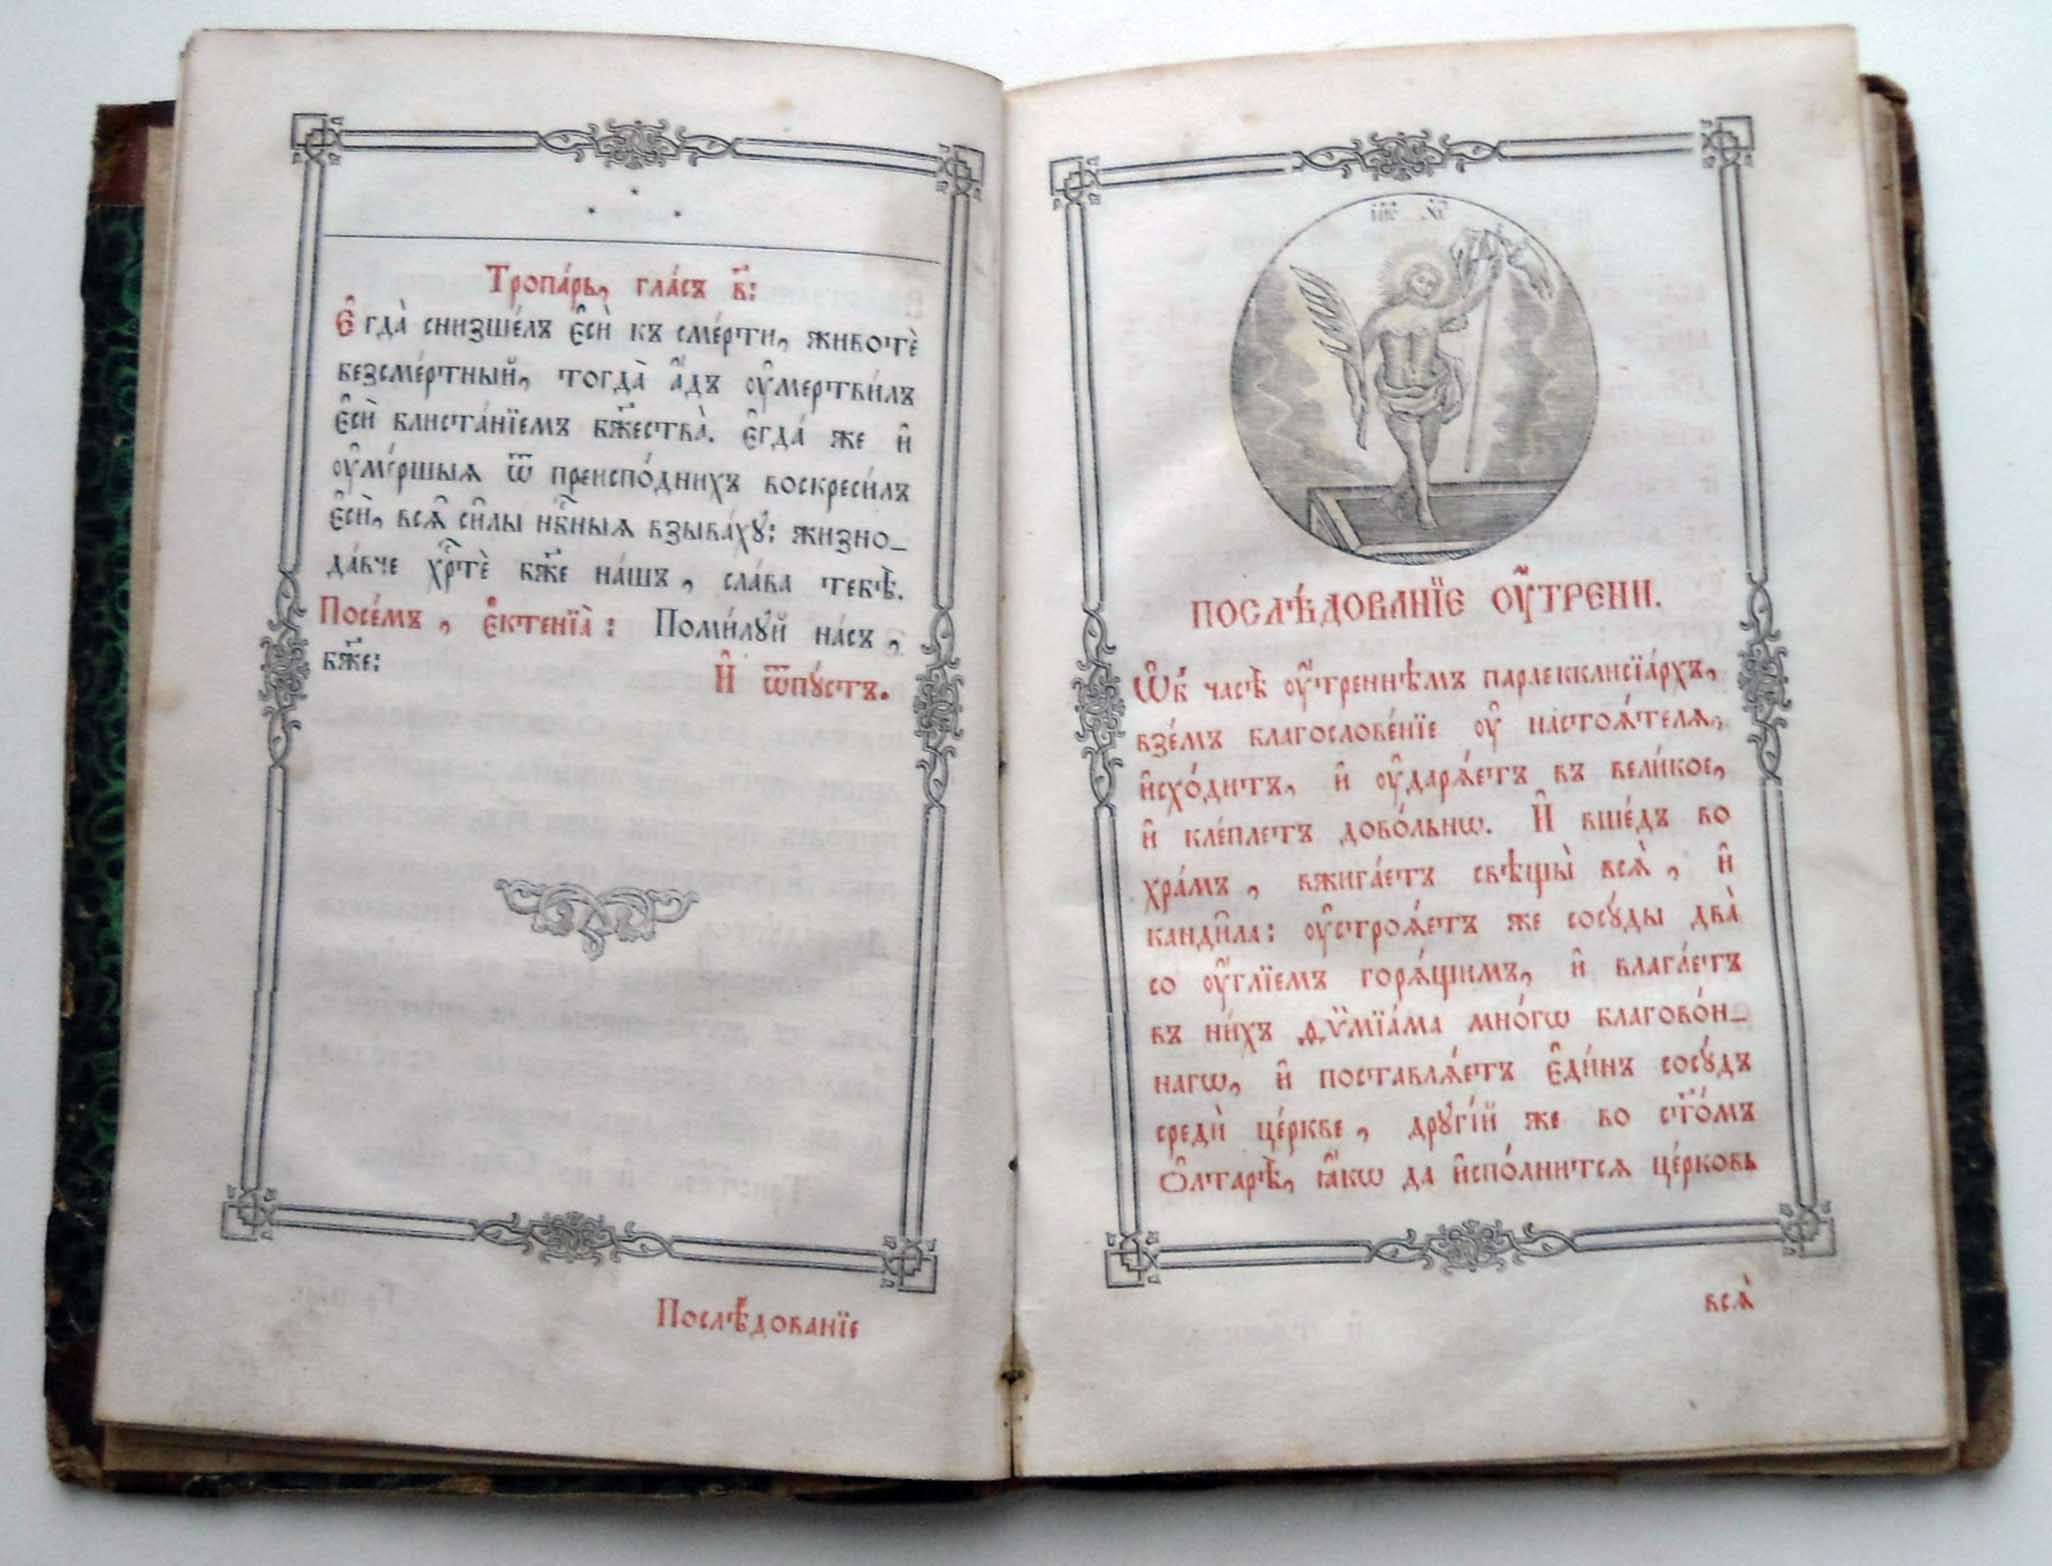 Тропа́рь, гла́съ в҃:
Є҆гда̀ снизше́лъ є҆сѝ къ сме́рти, животѐ
безсме́ртный, тогда̀ а҆́дъ ᲂу҆мертви́лъ
є҆сѝ блиста́нїемъ бж҃ества̀. Є҆гда́ же и҆
ᲂу҆ме́ршыѧ ѿ преиспо́днихъ воскреси́лъ
є҆сѝ, всѧ҄ си̑лы нбⷭ҇ныѧ взыва́хꙋ: жизно-
да́вче хрⷭ҇тѐ бж҃е на́шъ, сла́ва тебѣ̀.
Посе́мъ, є҆ктенїа̀: Поми́лꙋй на́съ,
бж҃е:
И҆ ѿпꙋ́стъ.
Послѣ́дованїе
і҆и҃с хс҃
ПОСЛѢ́ДОВАНЇЕ ОУ҆́ТРЕНИ.
Ѡ҆к҃ часѣ̀ ᲂу҆́треннѣмъ параекклисїа́рхъ,
взе́мъ благослове́нїе ᲂу҆ настоѧ́телѧ,
и҆схо́дитъ, и҆ ᲂу҆дарѧ́етъ въ вели́кое,
и҆ кле́плетъ дово́льнѡ. И҆ вше́дъ во
хра́мъ, вжига́етъ свѣщы̀ всѧ̑, и҆
канди̑ла: ᲂу҆строѧ́етъ же сосꙋ́ды два̀
со ᲂу҆́глїемъ горѧ́щимъ, и҆ влага́етъ
въ ни́хъ ѳѷмїа́ма мно́гѡ благово́н-
нагѡ, и҆ поставлѧ́етъ є҆ди́нъ сосꙋ́дъ
средѝ це́ркве, дрꙋгі́й же во ст҃о́мъ
Ѻ҆лтарѣ̀, ꙗ҆́кѡ да и҆спо́лнитсѧ це́рковь
всѧ̀